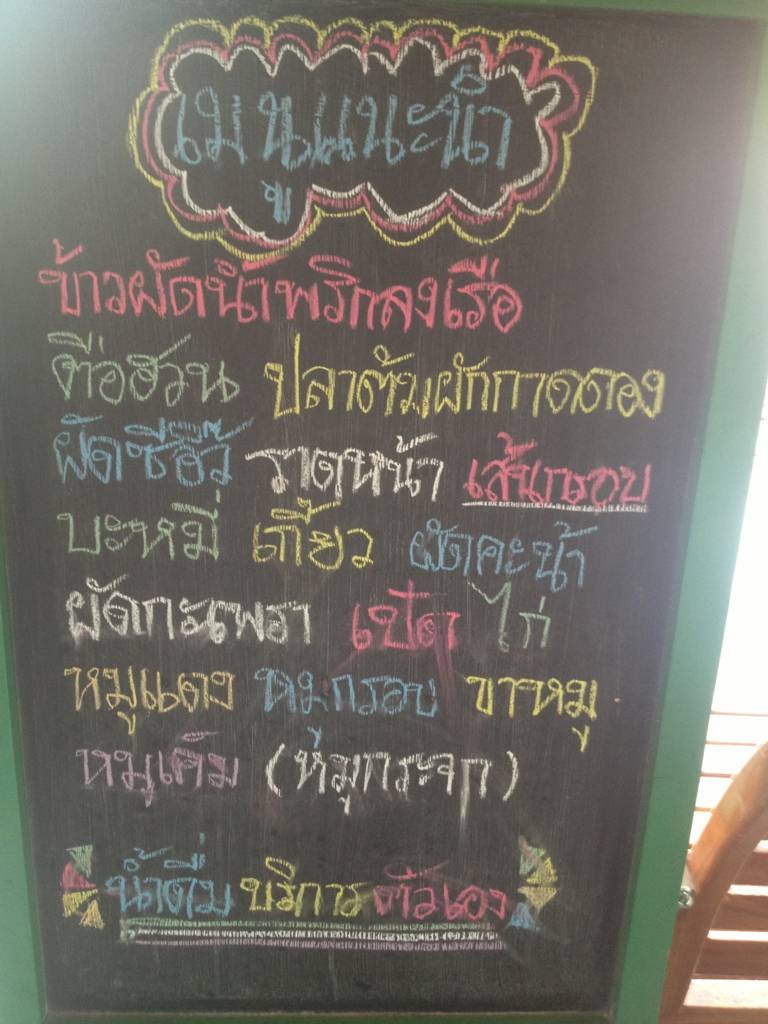 เมนูแนะนำ
ข้าวผัดน้ำพริกลงเรือ
ตือฮวน ปลาต้มผักกาดดอง
ผัดซีอิ๊ว ราดหน้า เส้นกรอบ
บะหมี่ เกี๊ยว ผัดคะน้า
ผัดกะเพรา เป็ด ไก่
หมูแดง หมูกรอบ ขาหมู
หมูเค็ม (หมูกระจก)
น้ำดื่ม บริการ ตัวเอง